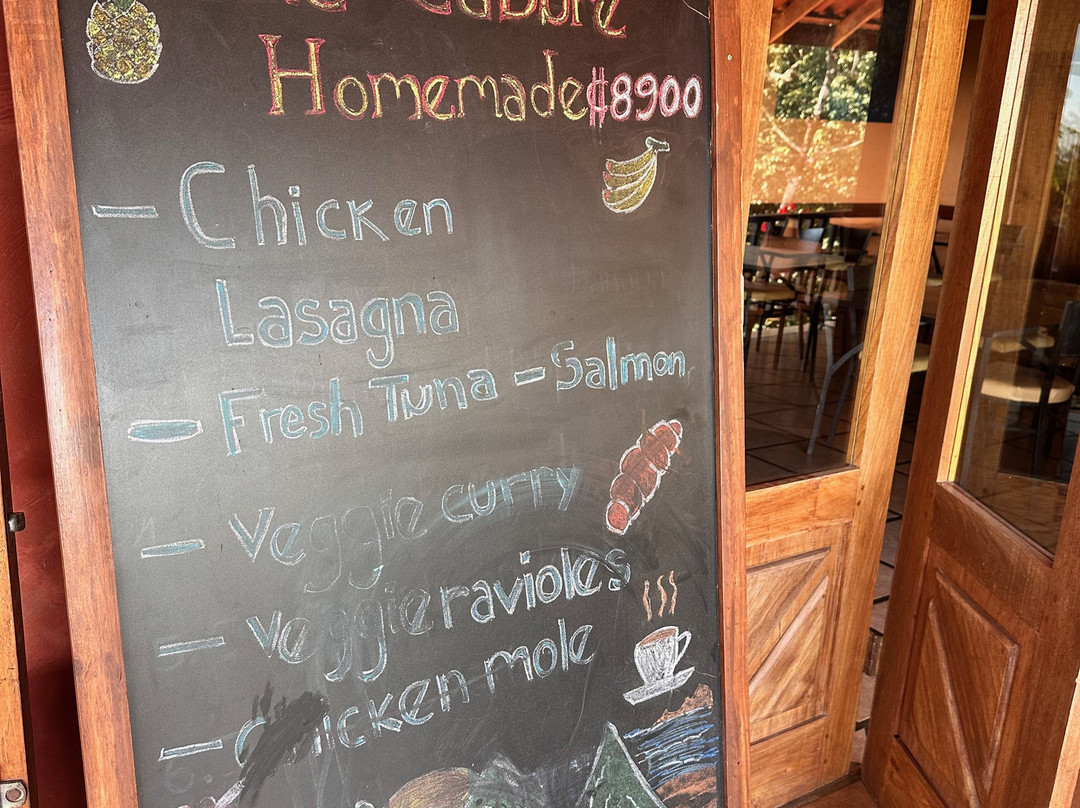 Homemade ₡8900
- Chicken
Lasagna
- Fresh Tuna - Salmon
- Veggie curry
- Veggie ravioles
- Chicken mole